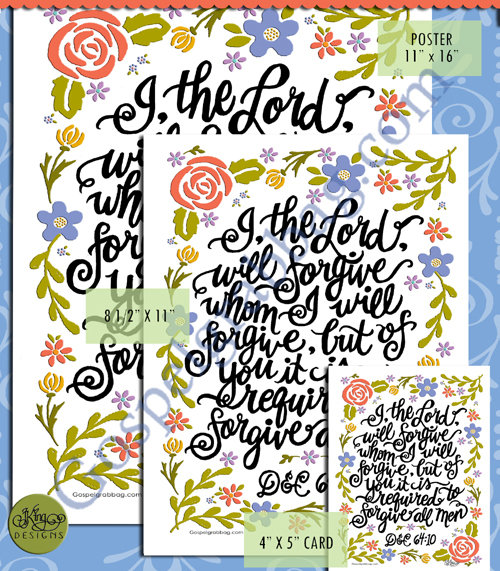 POSTER
11" x 16"
I, the Lord,
will
wh
for
y
forg
Gospelgrabbag.com
8 1/2" X 11"
I, the Lord,
will forgive
whom I will
forgive, but of
you it is
requir
forgive a
D&C 6
Gospelgrabbag.com
4" X 5" CARD
I, the Lord
will forgive
whom I will
forgive, but of
you it is
required to
forgive all men
D&C 64:10
King
DESIGNS
Gospelgrabbag.com